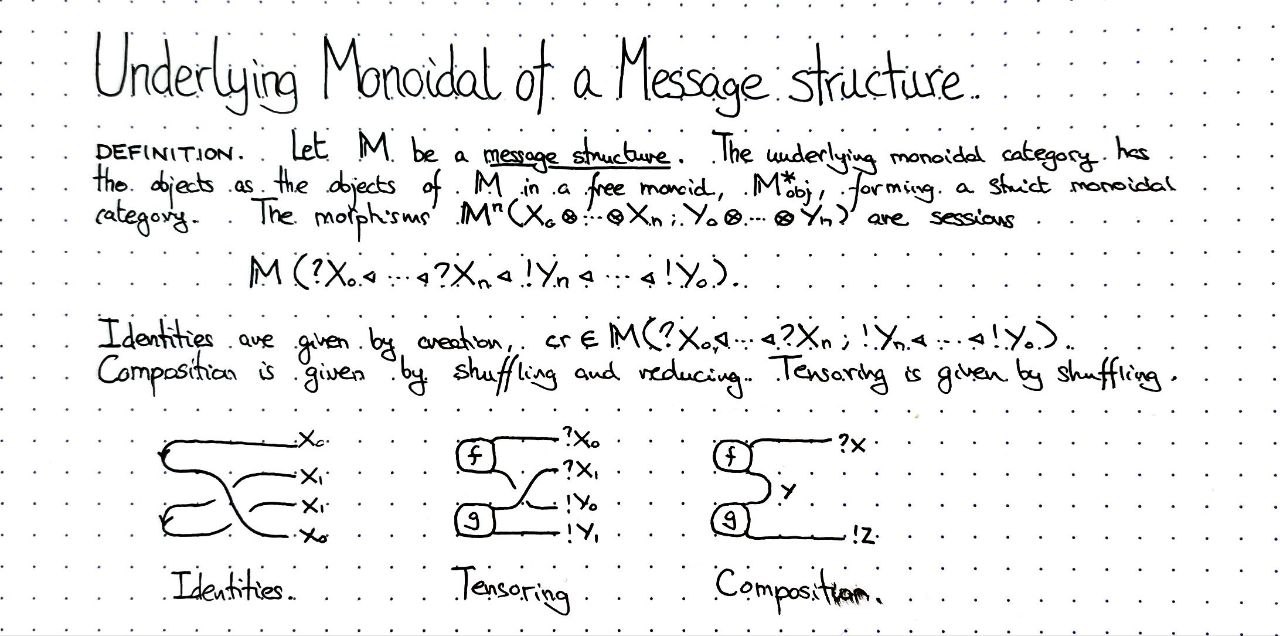 Underlying Monoidal of a Message structure.
DEFINITION. Let 𝕄 be a message structure. The underlying monoidal category has
the objects as the objects of 𝕄 in a free monoid, 𝕄*obj, forming a strict monoidal
category. The morphisms 𝕄ⁿ(X₀⊗···⊗Xₙ; Y₀⊗···⊗Yₙ) are sessions
𝕄(?X₀◃···◃?Xₙ◃!Yₙ◃···◃!Y₀).
Identities are given by creation, cr ∈ 𝕄(?X₀◃···◃?Xₙ; !Yₙ◃···◃!Y₀).
Composition is given by shuffling and reducing. Tensoring is given by shuffling.
X₀ f ?X₀ f ?X
X₁ ?X₁
Y
X₁ !Y₀
X₀ g !Y₁ g !Z
Identities. Tensoring Composition.